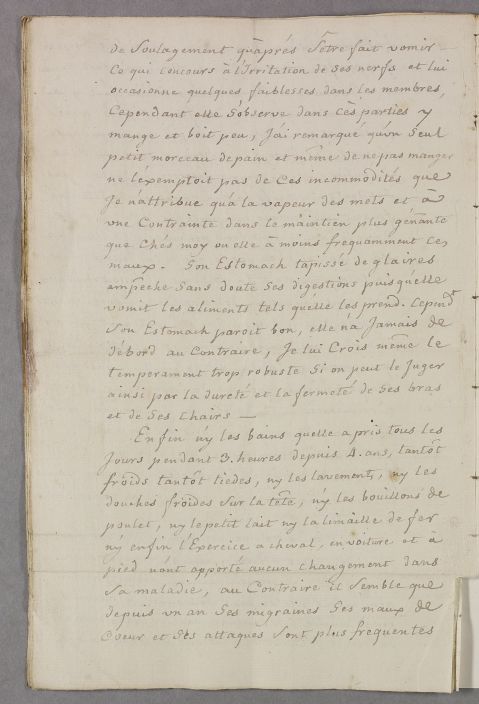 de Soulagement qu'aprés S'etre fait vomir
Ce qui concours à l'Irritation de Ses nerfs et lui
occasionne quelques faiblesses dans les membres,
Cependant elle S'observe dans cès parties y
mange et boit peu, J'ai remarqué qu'un Seul
petit morceau de pain et même de ne pas manger
ne l'éxemptoit pas de Ces incommodités que
Je n'attribue qu'à la vapeur des mets et à
vne Contrainte dans le maintien plus génante
que Chés moy ou elle à moins frequamment ces
maux. Son Estomach tapissé de glaires
ampeche Sans doute Ses digestions puisqu'elle
vomit les aliments tels qu'elle les prend. Cepend.t
Son Estomach paroit bon, elle n'a Jamais de
débord au Contraire, Je lui Crois même le
temperament trop robuste Si on peut le Juger
ainsi par la dureté et la fermeté de Ses bras
et de Ses Chairs —
Enfin n'y les bains quelle a pris tous les
Jours pendant 3. heures depuis 4. ans, tantôt
froids tantôt tiedes, ny les lavements, ny les
douches froides Sur la tête, n'y les bouillons de
poulet, ny le petit lait ny la limaille de fer
n'y enfin l'Exercice a cheval, en voiture et à
pied n'ont apporté aucun changement dans
Sa maladie, au Contraire il Semble que
depuis vn an Ses migraines Ses maux de
Coeur et Ses attaques Sont plus frequentes